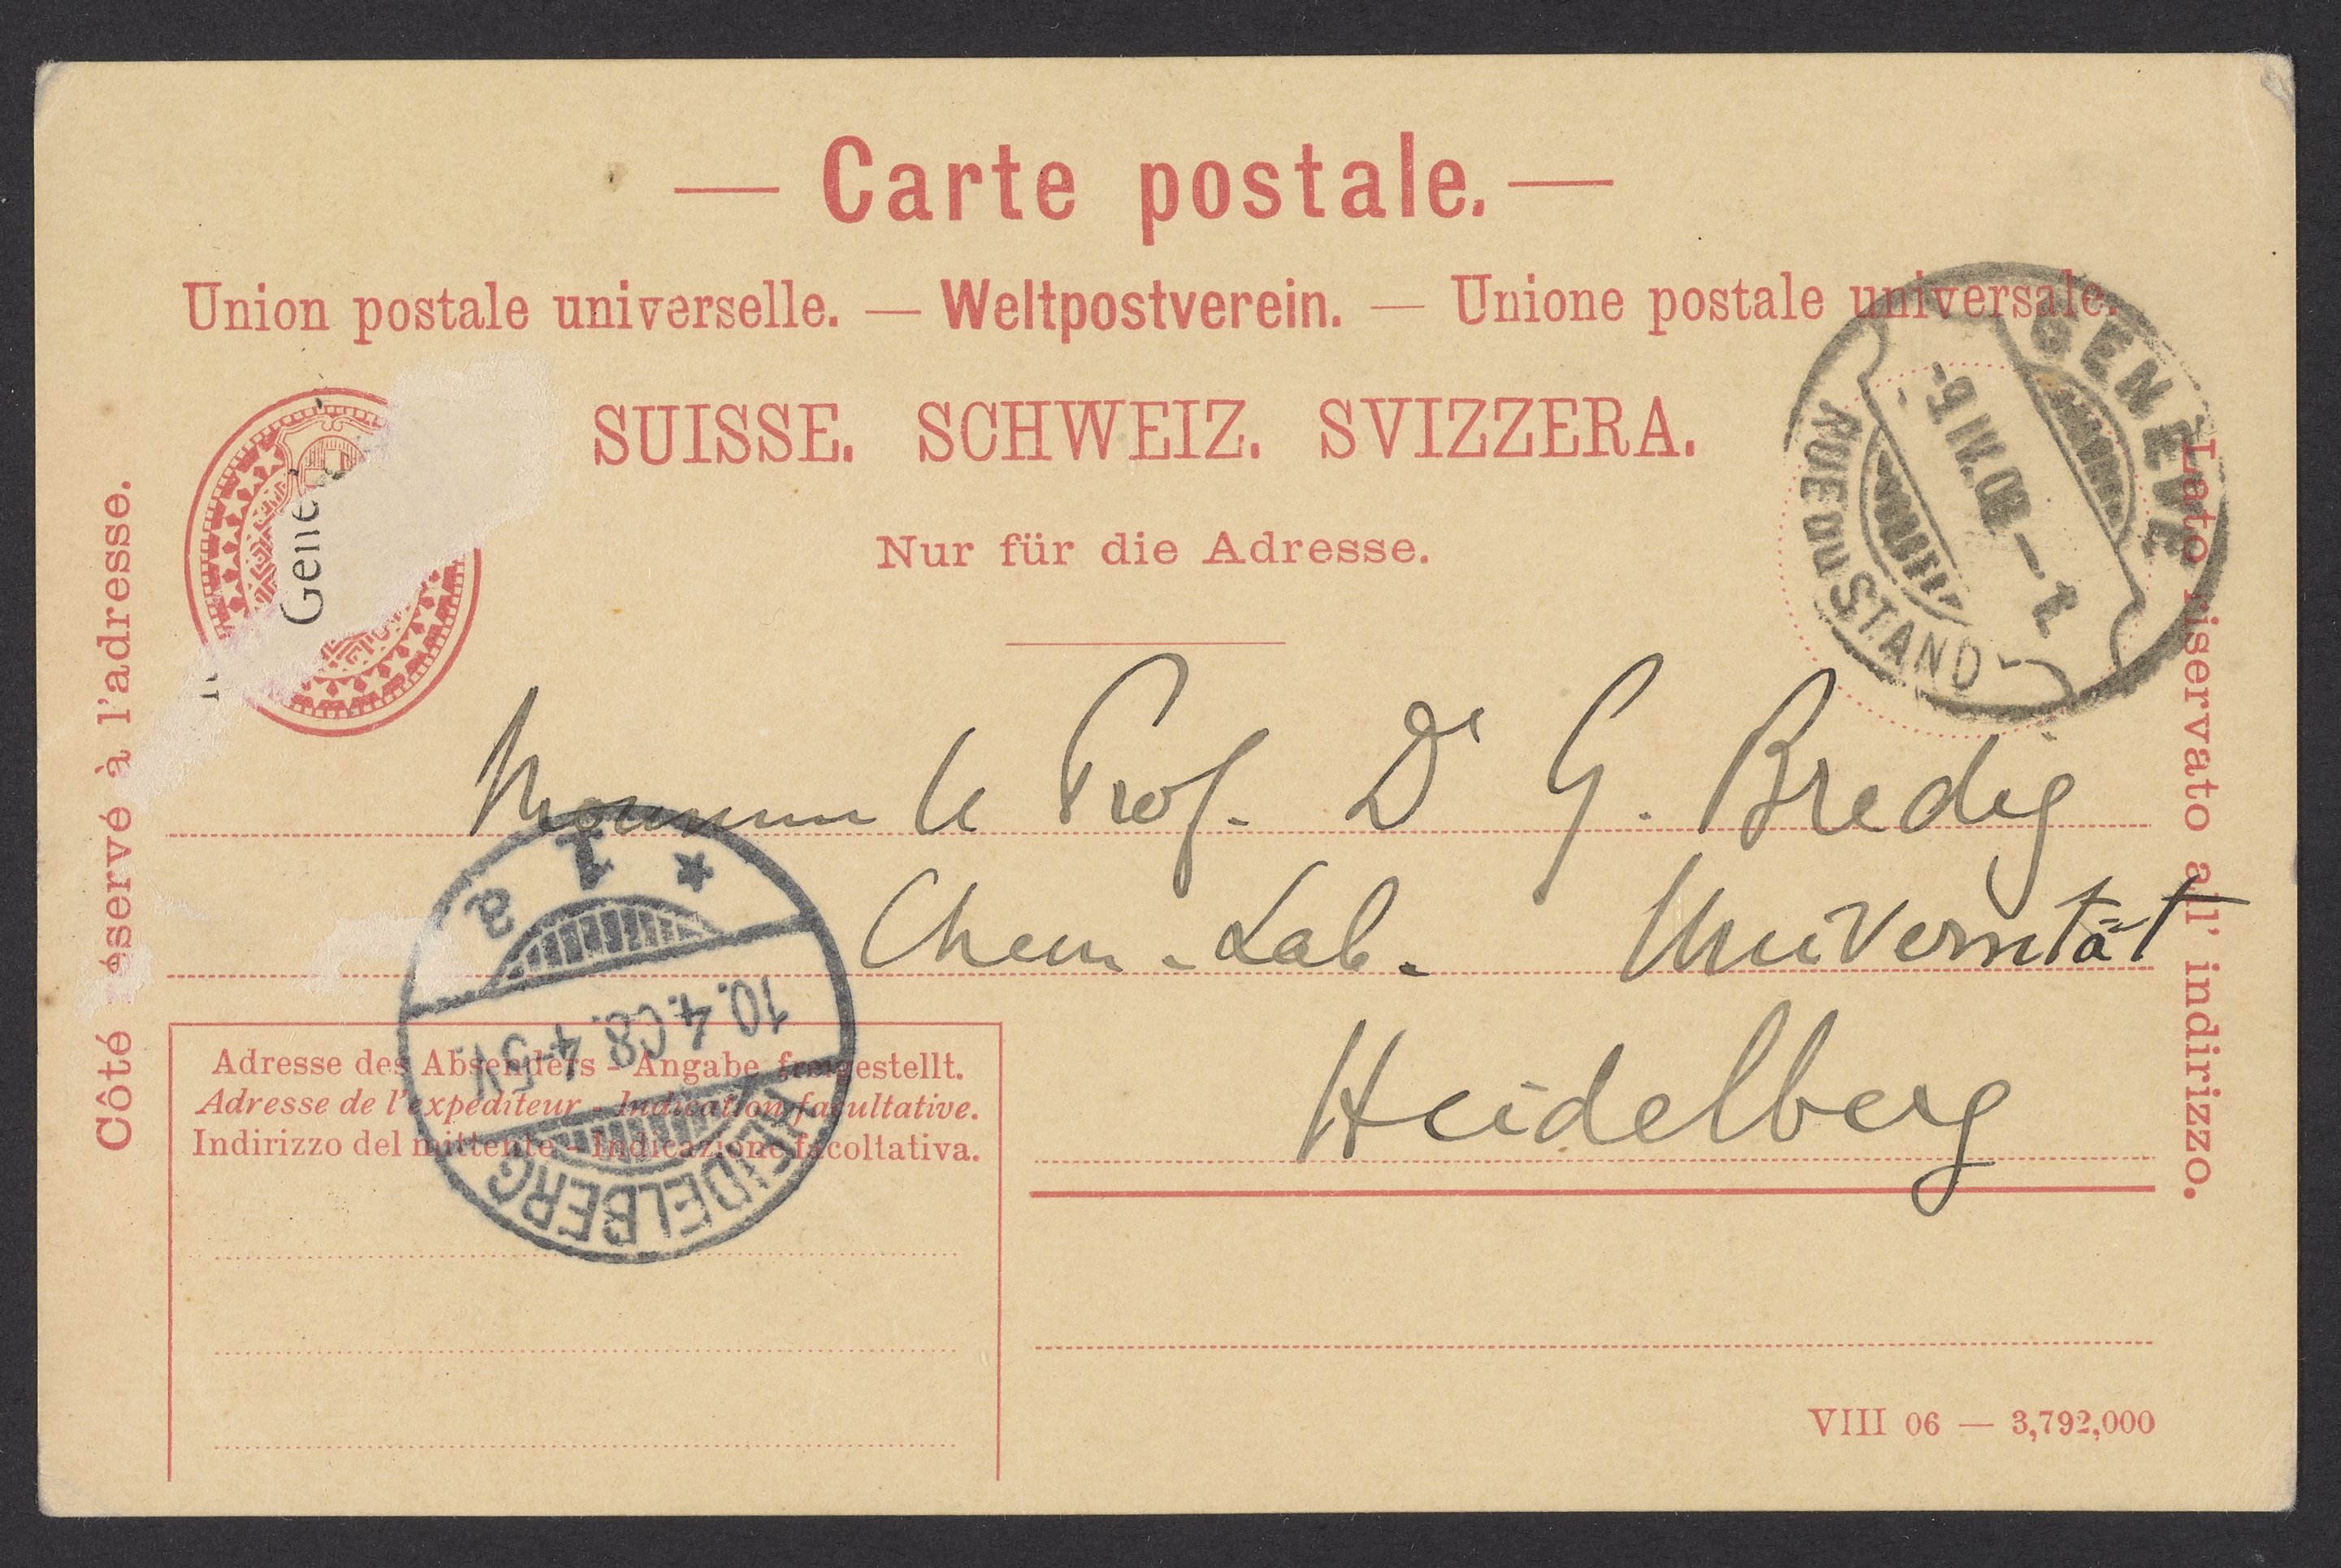 — Carte postale. —
Union postale universelle. — Weltpostverein. — Unione postale universale.
SUISSE. SCHWEIZ. SVIZZERA.
Nur für die Adresse.
Côté réservé à l'adresse.
Lato riservato all' indirizzo.
GENÈVE
-9.IV.08 —
RUE DU STAND
Monsieur le Prof. Dr G. Bredig
Chem. Lab. Universität
Heidelberg
HEIDELBERG
10.4.08. 4-5V.
* 1 a
Adresse des Absenders - Angabe freigestellt.
Adresse de l'expéditeur - Indication facultative.
Indirizzo del mittente - Indicazione facoltativa.
VIII 06 — 3,792,000